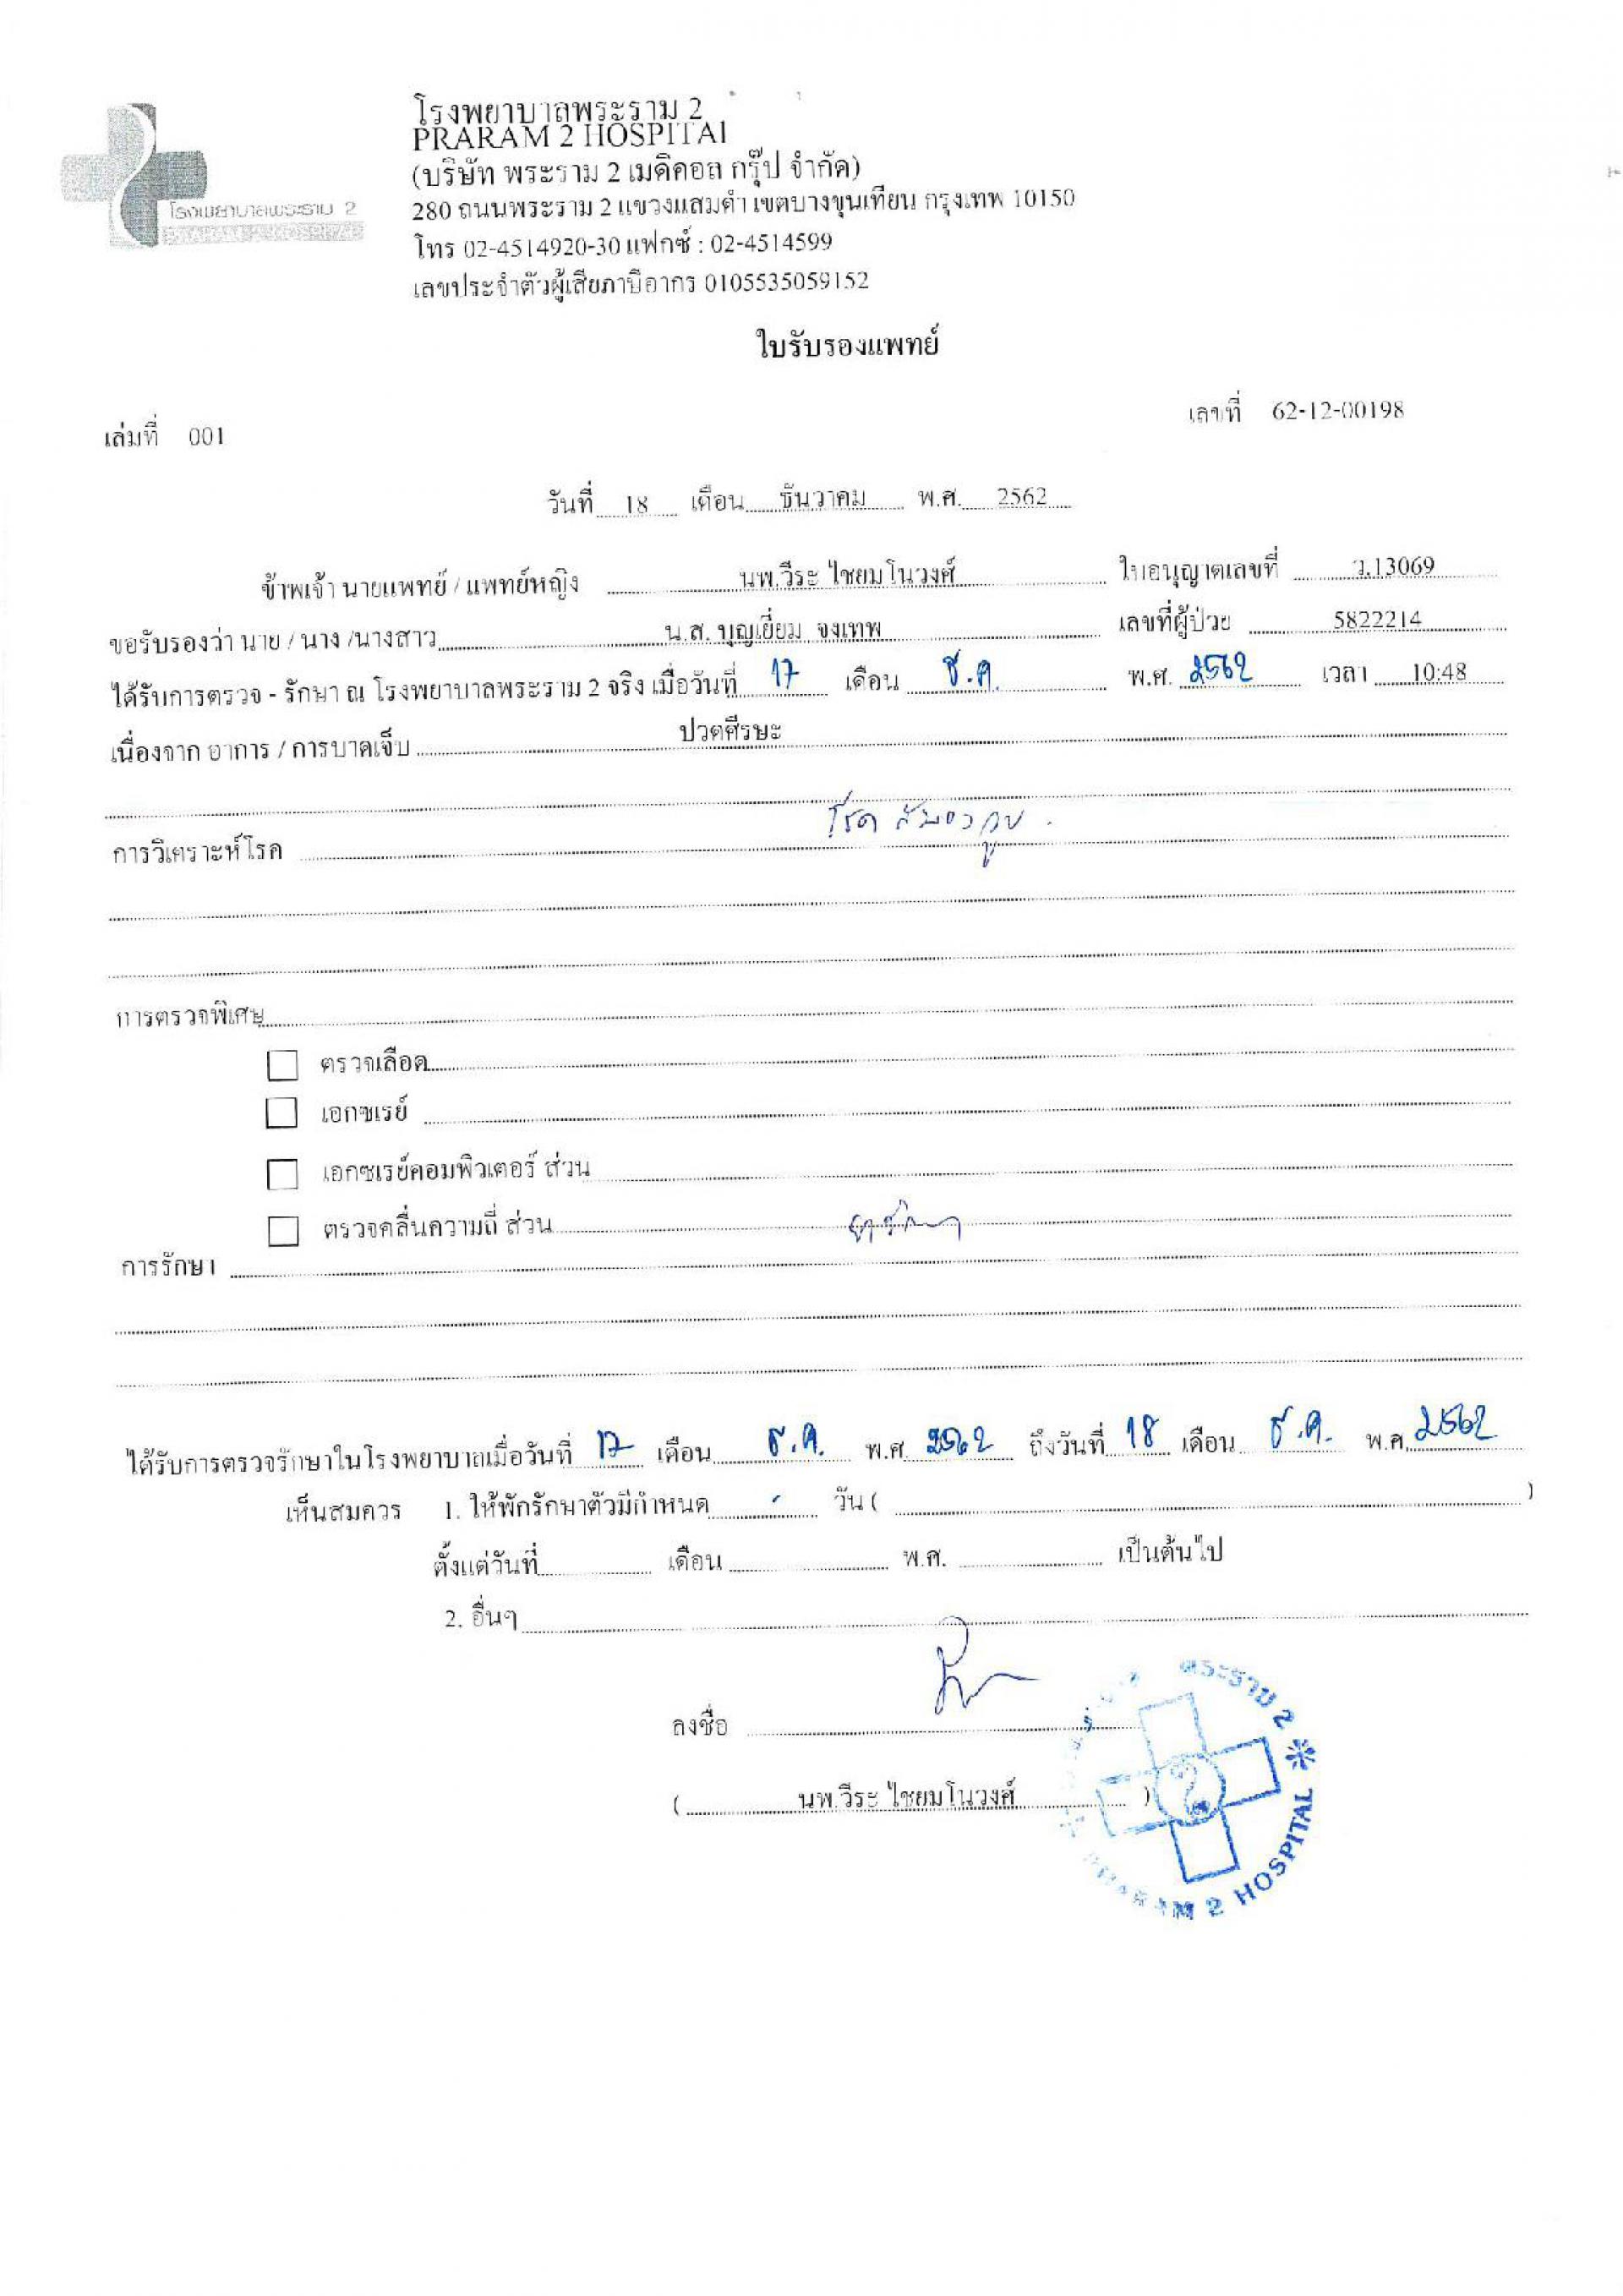 โรงพยาบาลพระราม 2
PRARAM 2 HOSPITAL
(บริษัท พระราม 2 เมดิคอล กรุ๊ป จำกัด)
โรงพยาบาลพระราม 2
PRARAM 2 HOSPITAL
280 ถนนพระราม 2 แขวงแสมดำ เขตบางขุนเทียน กรุงเทพ 10150
โทร 02-4514920-30 แฟกซ์ : 02-4514599
เลขประจำตัวผู้เสียภาษีอากร 0105535059152
ใบรับรองแพทย์
เลขที่ 62-12-00198
เล่มที่ 001
วันที่ 18 เดือน ธันวาคม พ.ศ. 2562
ข้าพเจ้า นายแพทย์ / แพทย์หญิง นพ.วีระ ไชยมโนวงศ์ ใบอนุญาตเลขที่ ว.13069
ขอรับรองว่า นาย / นาง /นางสาว น.ส. บุญเยี่ยม จงเทพ เลขที่ผู้ป่วย 5822214
ได้รับการตรวจ - รักษา ณ โรงพยาบาลพระราม 2 จริง เมื่อวันที่ 17 เดือน ธ.ค. พ.ศ. 2562 เวลา 10:48
เนื่องจาก อาการ / การบาดเจ็บ ปวดศีรษะ
การวิเคราะห์โรค โรค
การตรวจพิเศษ
ตรวจเลือด
เอกซเรย์
เอกซเรย์คอมพิวเตอร์ ส่วน
ตรวจคลื่นความถี่ ส่วน
การรักษา
ได้รับการตรวจรักษาในโรงพยาบาลเมื่อวันที่ 17 เดือน ธ.ค. พ.ศ 2562 ถึงวันที่ 18 เดือน ธ.ค. พ.ศ 2562
เห็นสมควร 1. ให้พักรักษาตัวมีกำหนด วัน ( )
ตั้งแต่วันที่ เดือน พ.ศ. เป็นต้นไป
2. อื่นๆ
ลงชื่อ
( นพ.วีระ ไชยมโนวงศ์ )
พระราม 2 * PRARAM 2 HOSPITAL